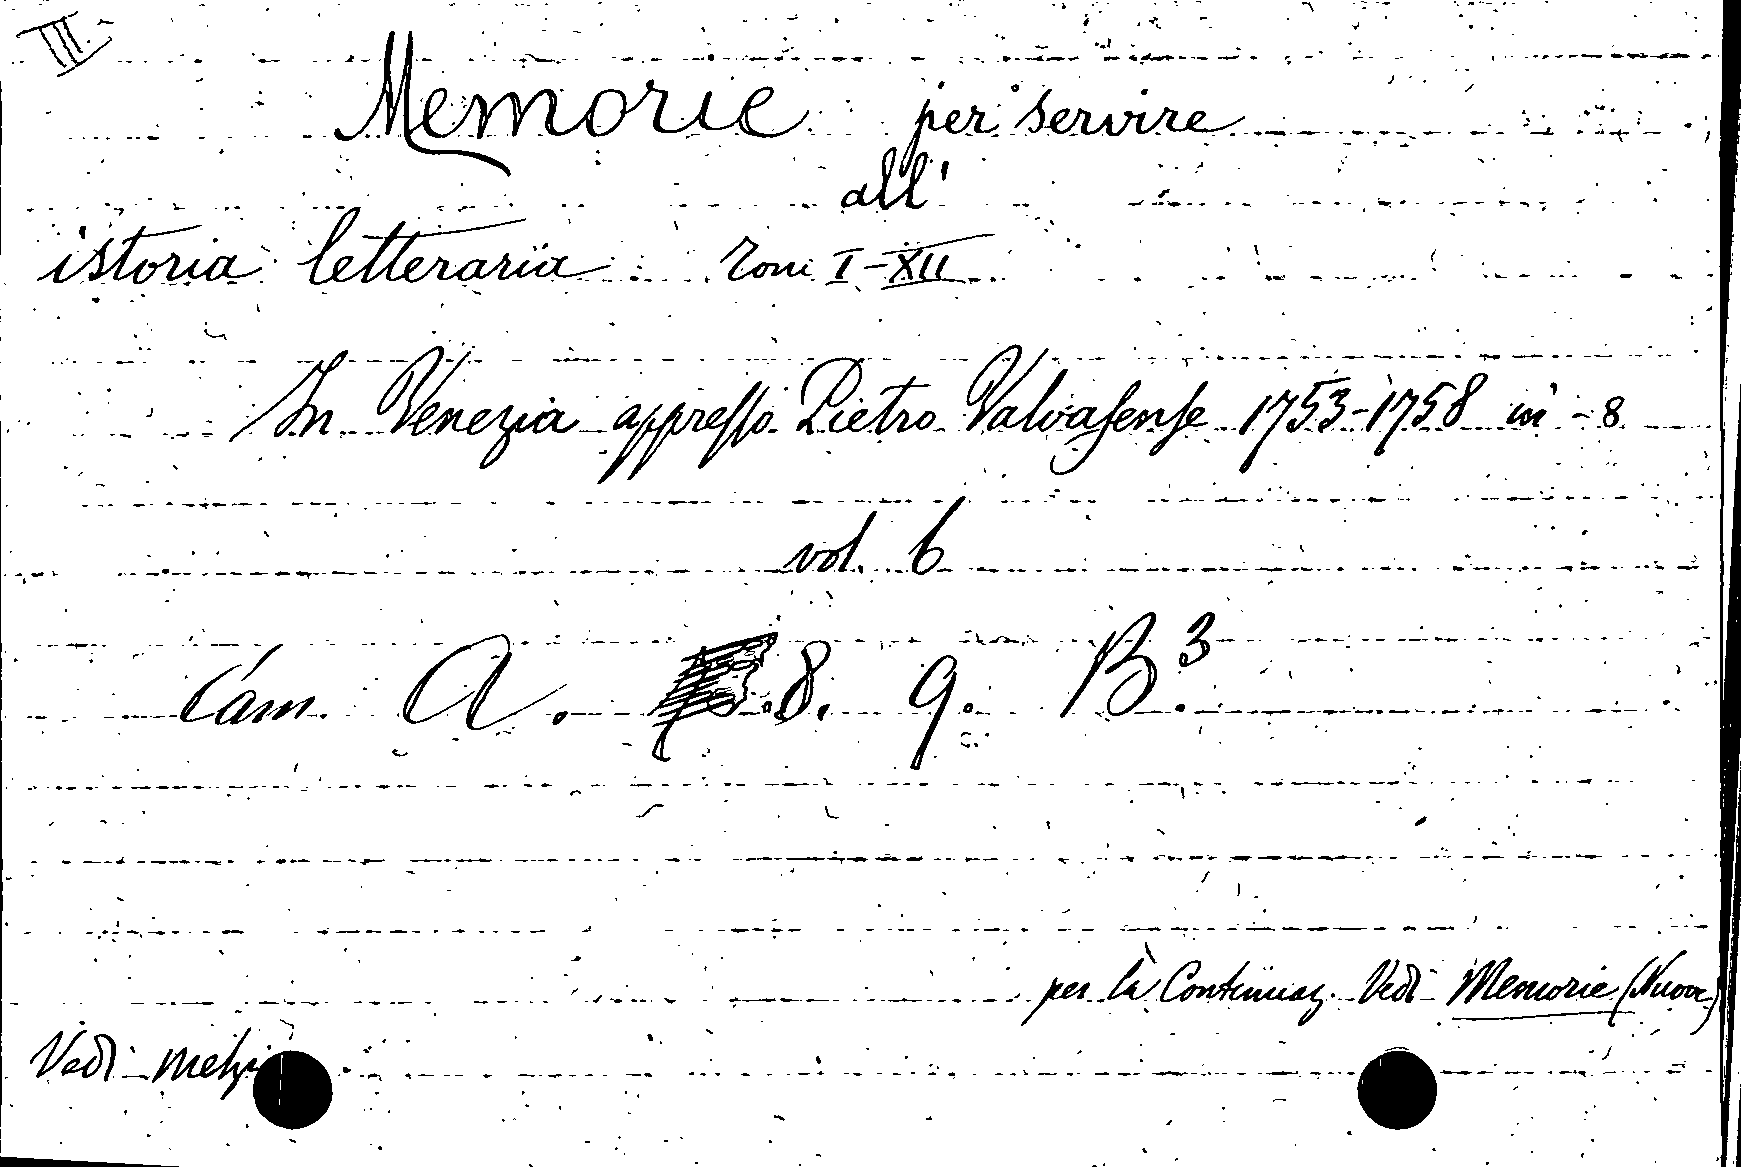 III.
Memorie per servire
all'
istoria letteraria Tomi I-XII
In Venezia appresso Pietro Valvasense 1753-1758 in-8
vol. 6
Cam. A. 8. 9. B³.
per la Continuaz. Vedi Memorie (Nuove)
Vedi Melzi